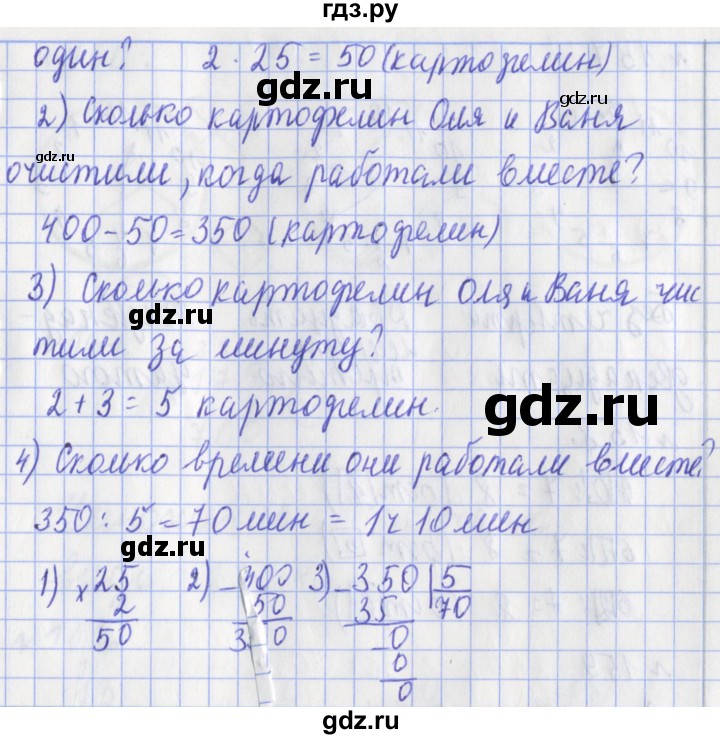 гдз.ру
один? 2 · 25 = 50 (картофелин)
gdz.ru gdz.ru
2) Сколько картофелин Оля и Ваня
gdz.ru
очистили, когда работали вместе?
gdz.ru
400 - 50 = 350 (картофелин)
3) Сколько картофелин Оля и Ваня чис
gdz.ru
тили за минуту?
2 + 3 = 5 картофелин.
gdz.ru
4) Сколько времени они работали вместе?
gdz.ru
350 : 5 = 70 мин = 1 ч 10 мин
gdz.ru
1) × 25 2) - 400 3) - 350 | 5
2 50 35 70
50 3 0 - 0
0
0
gdz.ru
gdz.ru